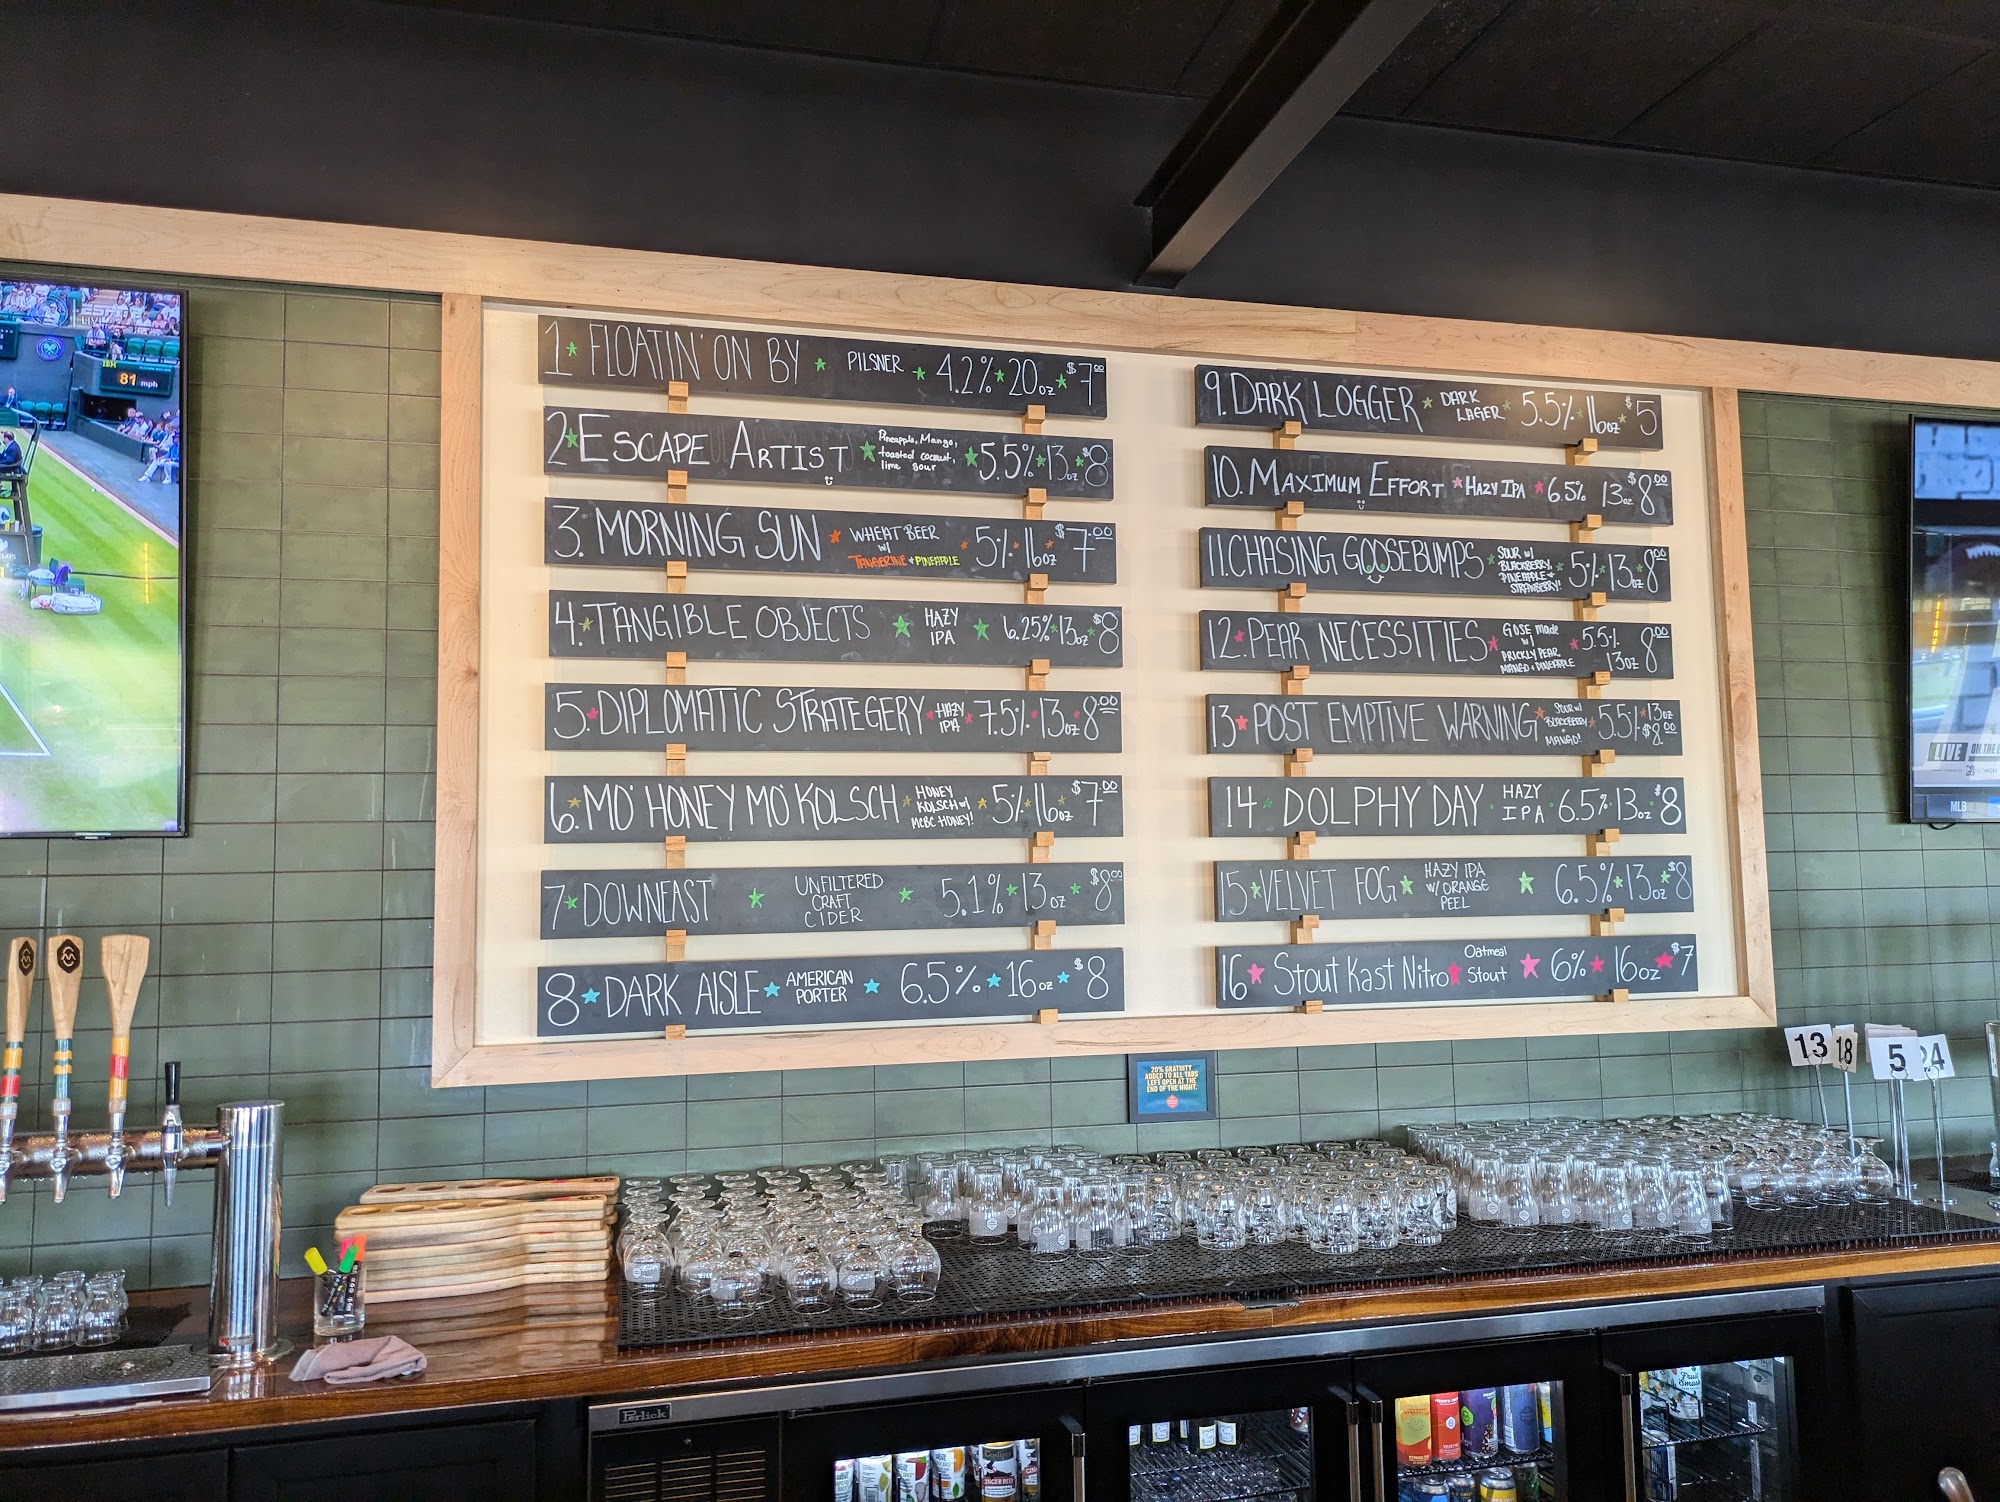 1 FLOATIN' ON BY PILSNER 4.2% 20oz $7.00
2 ESCAPE ARTIST Pineapple, Mango, toasted coconut, lime sour 5.5% 13oz $8
3. MORNING SUN WHEAT BEER W/ TANGERINE + PINEAPPLE 5% 16oz $7.00
4. TANGIBLE OBJECTS HAZY IPA 6.25% 13oz $8
5. DIPLOMATIC STRATEGERY HAZY IPA 7.5% 13oz 8.00
6. MO' HONEY MO' KOLSCH HONEY KOLSCH W/ MCBC HONEY! 5% 16oz $7.00
7 DOWNEAST UNFILTERED CRAFT CIDER 5.1% 13oz $8.00
8 DARK AISLE AMERICAN PORTER 6.5% 16oz $8
9. DARK LOGGER DARK LAGER 5.5% 16oz $5
10. MAXIMUM EFFORT HAZY IPA 6.5% 13oz $8.00
11. CHASING GOOSEBUMPS SOUR W/ BLACKBERRY, PINEAPPLE + STRAWBERRY! 5% 13oz 8.00
12. PEAR NECESSITIES GOSE made W/ PRICKLY PEAR MANGO + PINEAPPLE 5.5% 13oz 8.00
13 POST EMPTIVE WARNING SOUR W/ BLACKBERRY + MANGO! 5.5% 13oz $8.00
14 DOLPHY DAY HAZY IPA 6.5% 13oz $8
15 VELVET FOG HAZY IPA W/ ORANGE PEEL 6.5% 13oz $8
16 Stout Kast Nitro Oatmeal Stout 6% 16oz $7
20% GRATUITY
ADDED TO ALL TABS
LEFT OPEN AT THE
END OF THE NIGHT.
IBM
81 mph
LIVE ON THE
MLB
13
18
5
24
Perlick